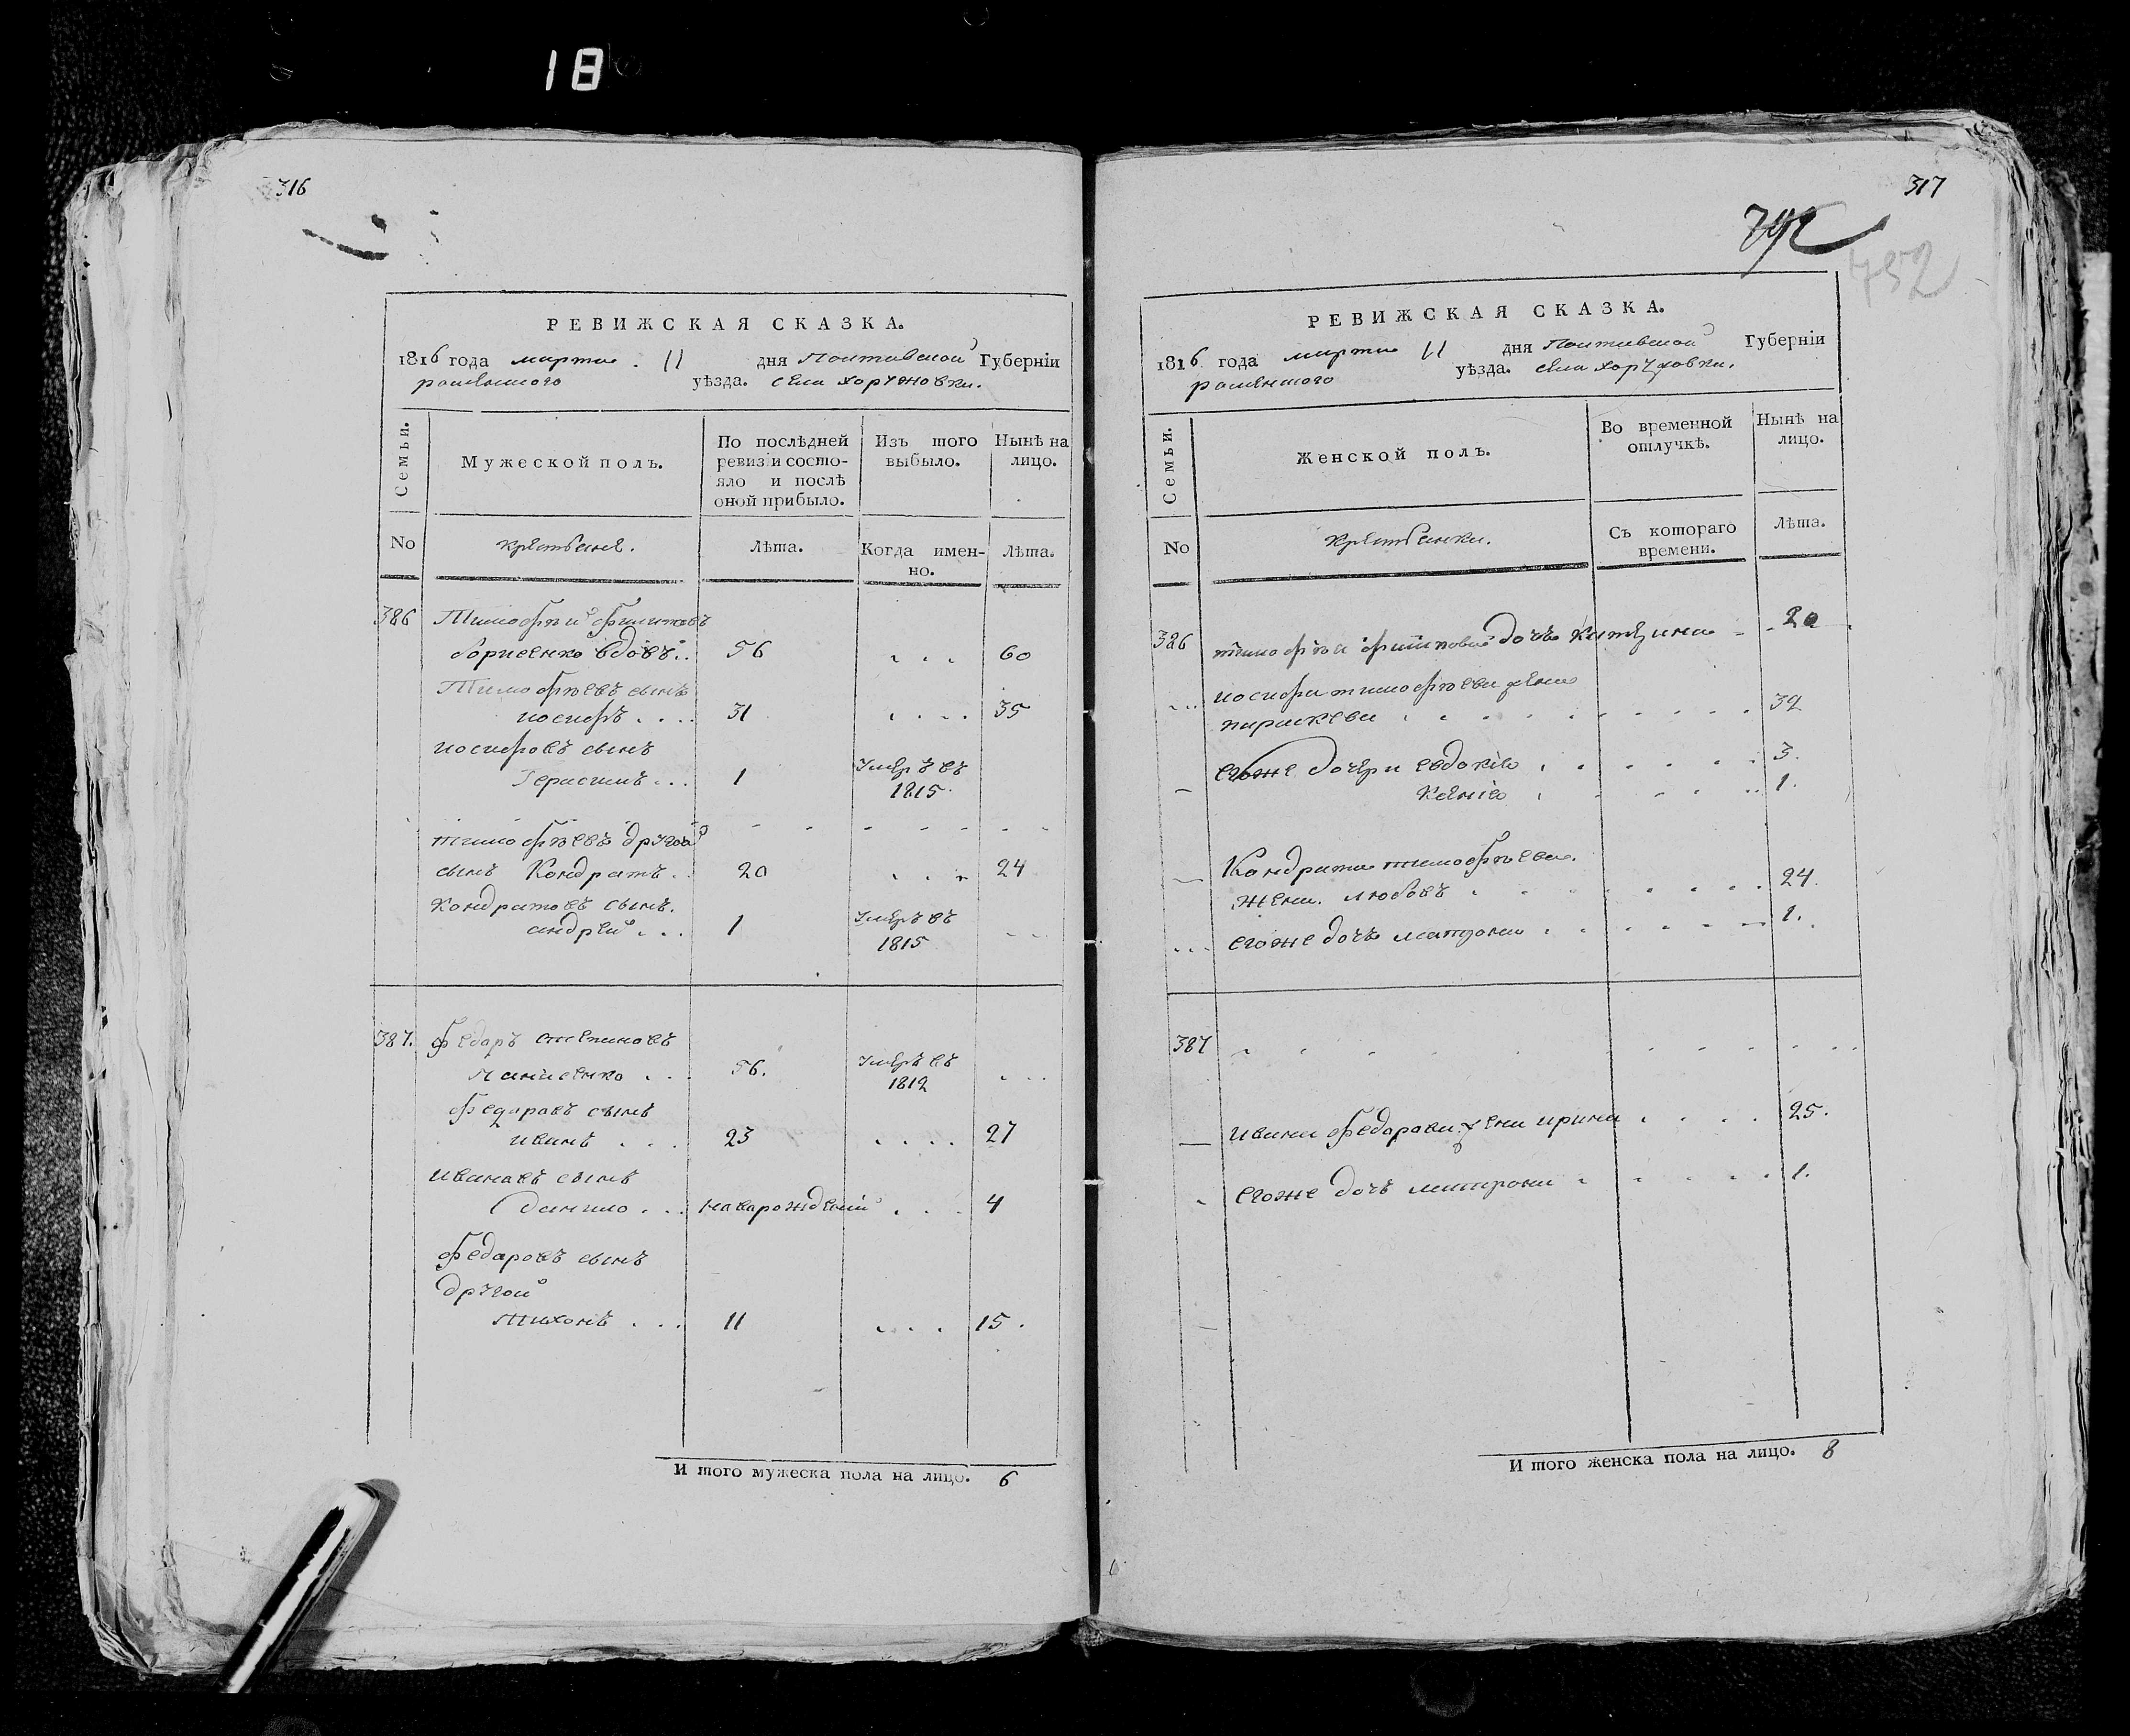 18
316
РЕВИЖСКАЯ СКАЗКА.
1816 года марта 11 дня Полтавской Губерніи
роменского уѣзда. села хоружовки.
Семьи.
Мужеской полъ.
По послѣдней ревизіи состо-
яло и послѣ
оной прибыло.
Изъ того
выбыло.
Нынѣ на
лицо.
No
крестьяне.
Лѣта.
Когда имен-
но.
Лѣта.
386 Тимофѣй филиповъ
борисенко вдовъ.. 56 . . . 60
Тимофѣевъ сынъ
иосифъ . . . . 31 . . . . 35
иосифовъ сынъ
Герасимъ . . . 1 умеръ въ
1815.
тимофѣевъ другой
сынъ Кондратъ . . 20 . . . 24
Кондратовъ сынъ.
андрей . . . 1 умеръ въ
1815
387. федаръ степановъ
56. умеръ въ
1812
федаровъ сынъ
иванъ . . . 23 . . . . 27
ивановъ сынъ
данило . . . наварожденій . . . 4
федаровъ сынъ
другой
тихонъ . . . 11 . . . 15.
И того мужеска пола на лицо. 6
317
752
РЕВИЖСКАЯ СКАЗКА.
1816 года марта 11 дня Полтавской Губерніи
роменского уѣзда. села хоружовки.
Семьи.
Женской полъ.
Во временной
отлучкѣ.
Нынѣ на
лицо.
No
крестьянки.
Съ котораго
времени.
Лѣта.
386 тимофѣя филипова дочь катерина 20
иосифа тимофѣева жена
параскева 32
егоже дочери евдокія 3.
Ксенія 1.
Кондрата тимофѣева.
жена. любовъ 24.
егоже дочь матрона 1.
387
ивана федарова жена ирина 25.
егоже дочь матрона 1.
И того женска пола на лицо. 8